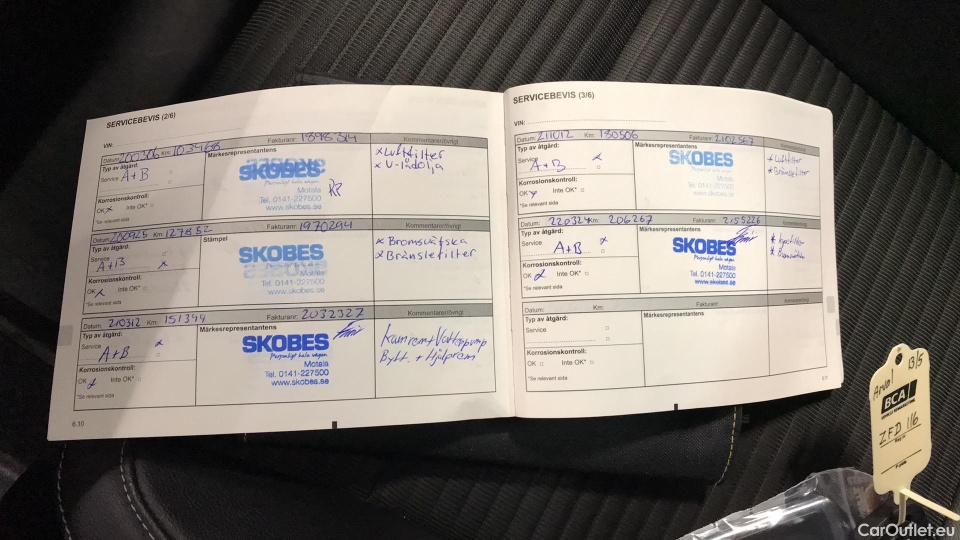 SERVICEBEVIS (2/6)
VIN:
Datum: 200306 Km: 103468 Fakturanr: 1898314 Kommentarer/övrigt
Typ av åtgärd:
Service
A+B x
Korrosionskontroll:
OK x Inte OK*
*Se relevant sida
Märkesrepresentantens
SKOBES
Personligt hela vägen
Motala
Tel. 0141-227500
www.skobes.se
x Luftfilter
x V-lådolja
Datum: 200925 Km: 127852 Fakturanr: 1970294 Kommentarer/övrigt
Typ av åtgärd:
Service
A+B x
Korrosionskontroll:
OK x Inte OK*
*Se relevant sida
Stämpel
SKOBES
Motala
Tel. 0141-227500
www.skobes.se
x Bromsvätska
x Bränslefilter
Datum: 210312 Km: 151344 Fakturanr: 2032327 Kommentarer/övrigt
Typ av åtgärd:
Service
A+B x
Korrosionskontroll:
OK x Inte OK*
*Se relevant sida
Märkesrepresentantens
SKOBES
Personligt hela vägen
Motala
Tel. 0141-227500
www.skobes.se
Kamrem+Vattenpump
Bytt. + Hjälprem
6.10
SERVICEBEVIS (3/6)
VIN:
Datum: 211012 Km: 180506 Fakturanr: 2102567 Kommentarer/övrigt
Typ av åtgärd:
Service
A+B x
Korrosionskontroll:
OK x Inte OK*
*Se relevant sida
Märkesrepresentantens
SKOBES
Motala
Tel. 0141-227500
www.skobes.se
* Luftfilter
* Bränslefilter
Datum: 220324 Km: 206267 Fakturanr: 2155226 Kommentarer/övrigt
Typ av åtgärd:
Service
A+B x
Korrosionskontroll:
OK x Inte OK*
*Se relevant sida
Märkesrepresentantens
SKOBES
Personligt hela vägen
Motala
Tel. 0141-227500
www.skobes.se
Datum: Km: Fakturanr: Kommentarer/övrigt
Typ av åtgärd:
Service
Korrosionskontroll:
OK Inte OK*
*Se relevant sida
Märkesrepresentantens
6.11
Arval 13/5
BCA
ZFD 116
CarOutlet.eu